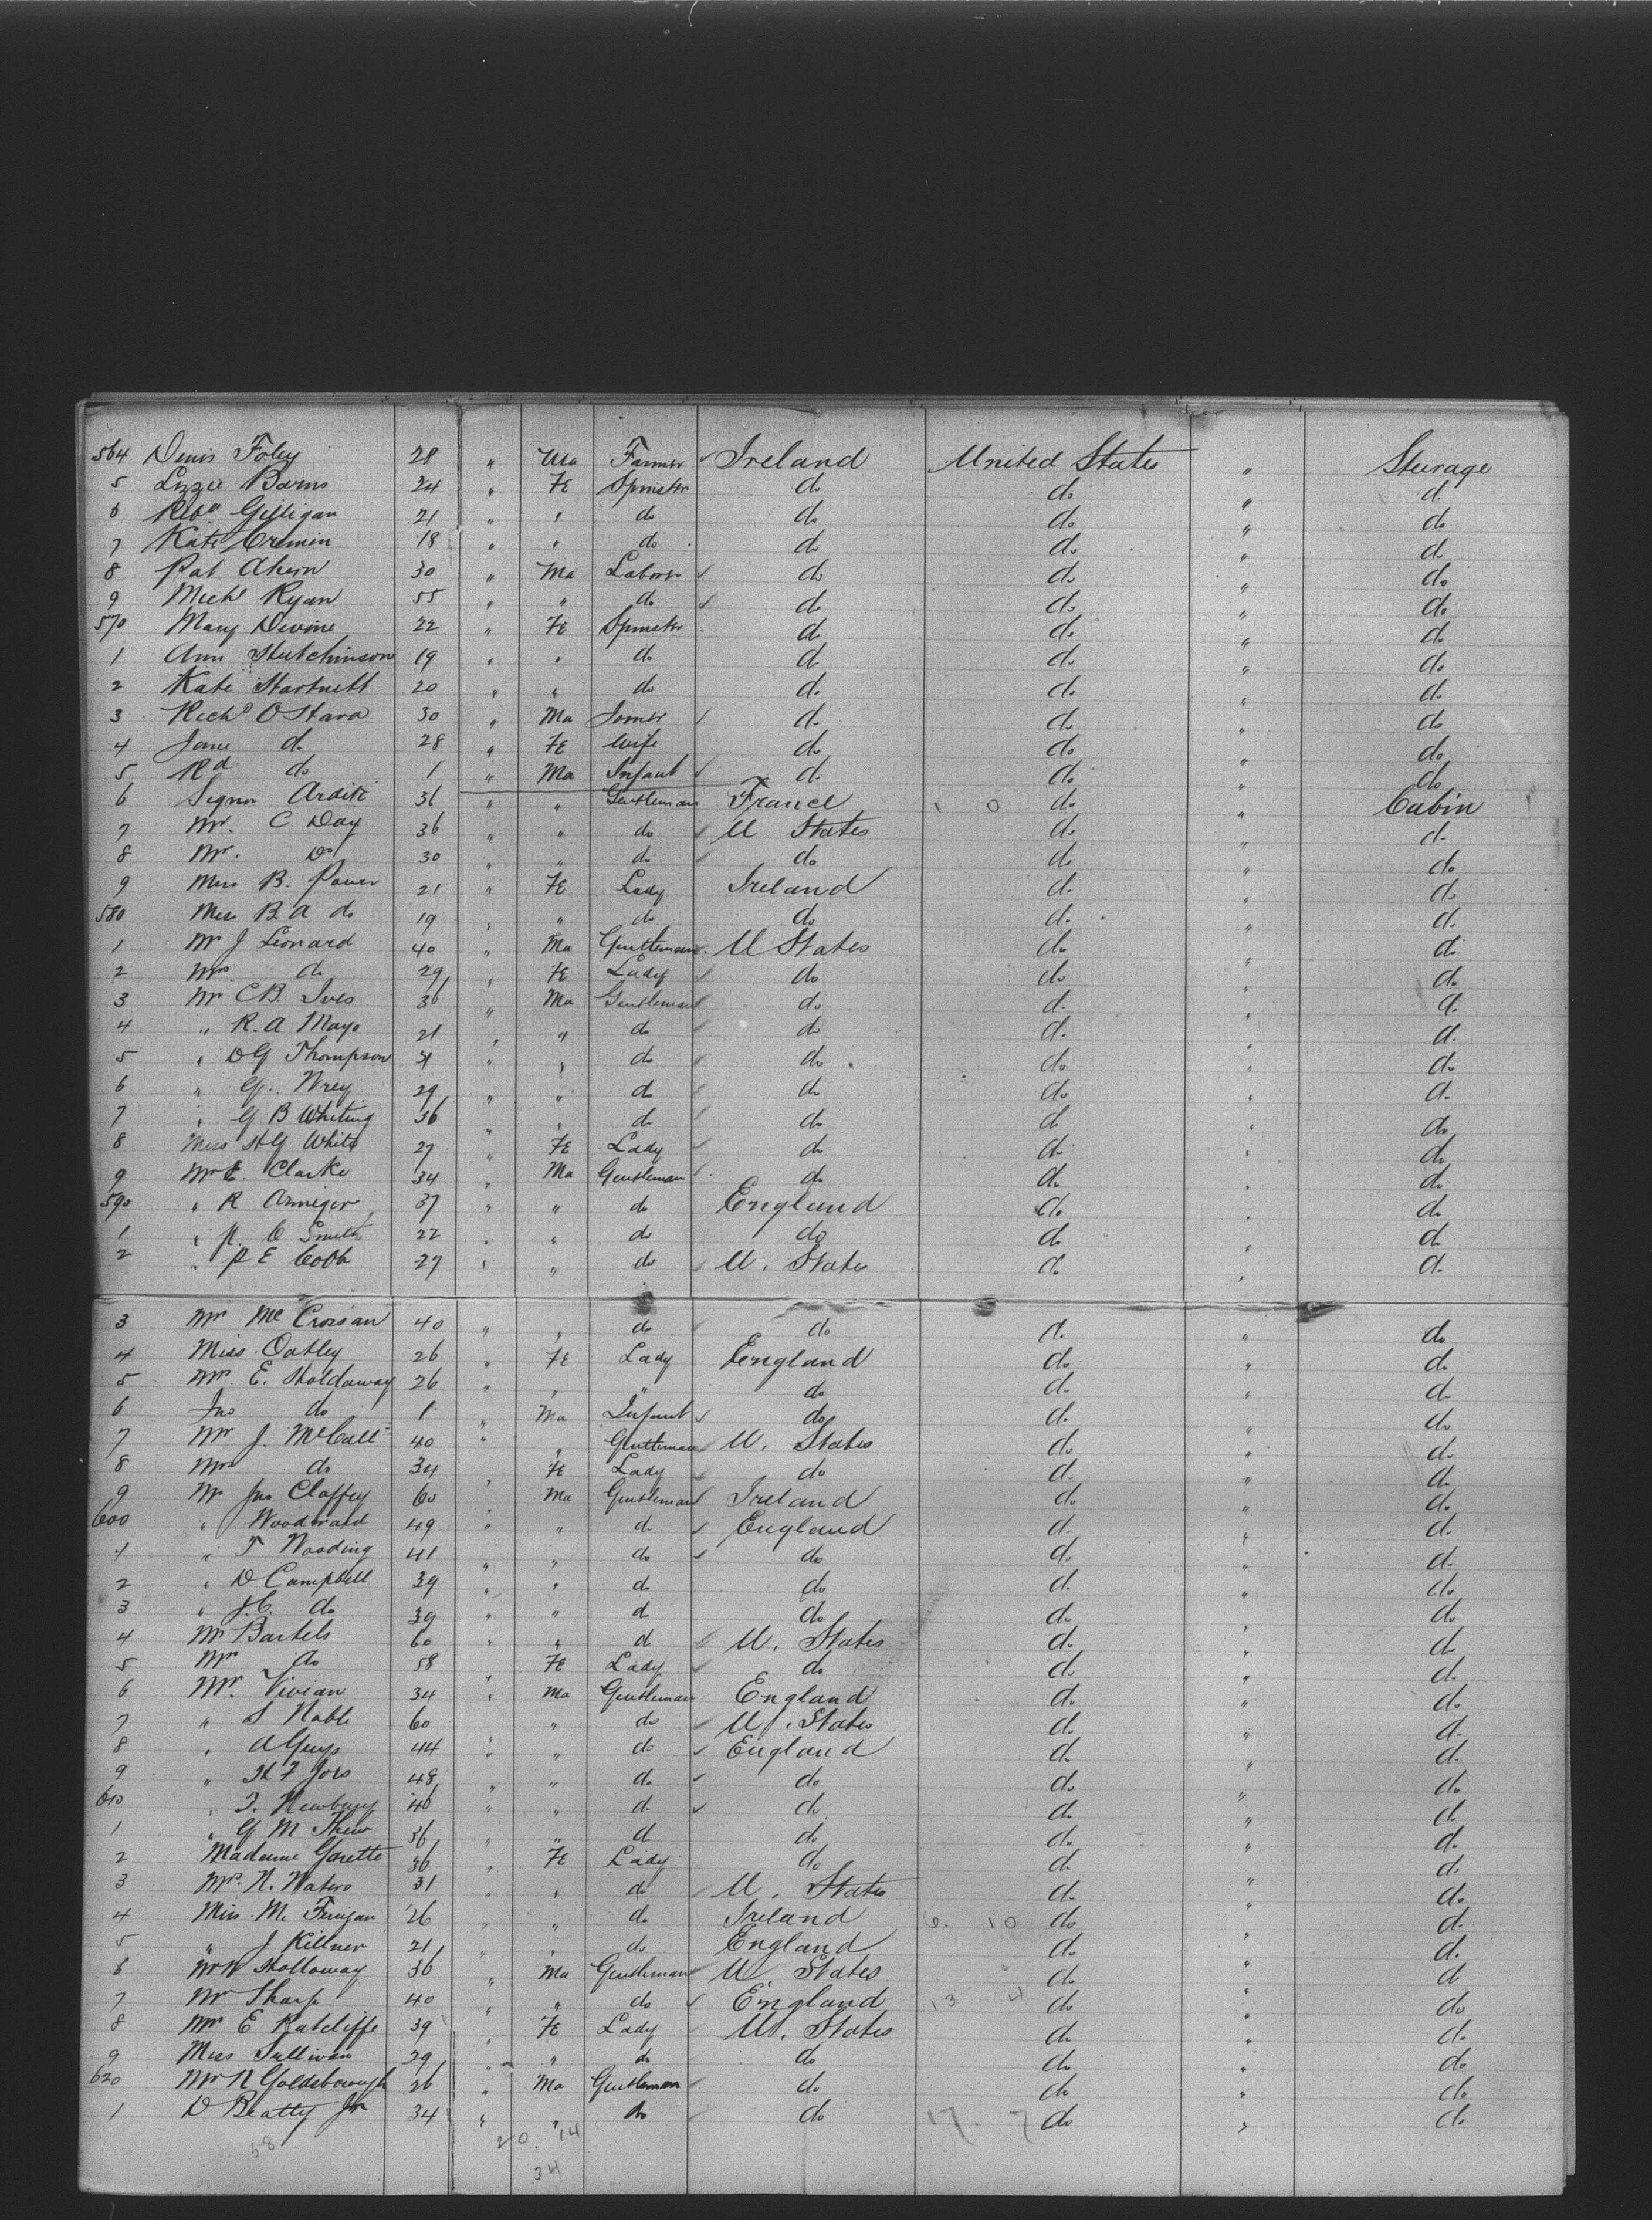 564 Denis Foley 28 " Ma Farmer Ireland United States " Sterage
5 Lizzie Barns 24 " Fe Spinster do do " do
6 Reba Gilligan 21 " " do do do " do
7 Kate Cremin 18 " " do do do " do
8 Pat Ahern 30 " Ma Laborer do do " do
9 Michl Ryan 55 " " do do do " do
570 Mary Devine 22 " Fe Spinster do do " do
1 Ann Hutchinson 19 " " do do do " do
2 Kate Hartnett 20 " " do do do " do
3 Richd O Hara 30 " Ma do do " do
4 Jane do 28 " Fe Wife do do " do
5 Rd do 1 " Ma Infant do do " do
6 Signor Arditi 36 " " Gentleman France 1 0 do " Cabin
7 Mr. C Day 36 " " do U States do " do
8 Mr. Do 30 " " do do do " do
9 Miss B. Power 21 " Fe Lady Ireland do " do
580 Miss B. A do 19 " " do do do " do
1 Mr J Leonard 40 " Ma Gentleman U States do " do
2 Mrs do 29 " Fe Lady do do " do
3 Mr C.B. Ives 36 " Ma Gentleman do do " do
4 " R. A Mayo 21 " " do do do " do
5 " D G Thompson 31 " " do do do " do
6 " G. Wrey 29 " " do do do " do
7 " G B Whiting 36 " " do do do " do
8 Miss H G White 27 " Fe Lady do do " do
9 Mr E. Clarke 34 " Ma Gentleman do do " do
590 " R Armiger 37 " " do England do " do
1 " H. C Smith 22 " " do do do " do
2 " P E Cobb 27 " " do U. States do " do
3 Mr Mc Crossan 40 " " do do do " do
4 Miss Oatley 26 " Fe Lady England do " do
5 Mrs. E. Holdaway 26 " " " do do " do
6 Jno do 1 " Ma Infant do do " do
7 Mr J. McCall 40 " " Gentleman U. States do " do
8 Mrs do 34 " Fe Lady do do " do
9 Mr Jno Claffey 60 " Ma Gentleman Ireland do " do
600 " Woodward 49 " " do England do " do
1 " T Wooding 41 " " do do do " do
2 " D Campbell 39 " " do do do " do
3 " J.C. do 39 " " do do do " do
4 Mr Bartels 60 " " do U. States do " do
5 Mrs do 58 " Fe Lady do do " do
6 Mr. Vivian 34 " Ma Gentleman England do " do
7 " S Noble 60 " " do U. States do " do
8 " A Guys 44 " " do England do " do
9 " H F 48 " " do do do " do
610 " T. Newbury 46 " " do do do " do
1 " G M Thew 36 " " do do do " do
2 Madame Gorette 36 " Fe Lady do do " do
3 Mrs. N. Waters 31 " " do U. States do " do
4 Miss M. Finigan 26 " " do Ireland 6. 10 do " do
5 " J Killner 21 " " do England do " do
6 Mr W Holloway 36 " Ma Gentleman U. States do " do
7 Mr Sharp 40 " " do England 13 4 do " do
8 Mrs E Ratcliffe 39 " Fe Lady U. States do " do
9 Miss Sullivan 29 " " do do do " do
620 Mr N Goldsborough 26 " Ma Gentleman do do " do
1 D Beatty Jr 34 " " do do 17. 7 do " do
58 20. 14
34